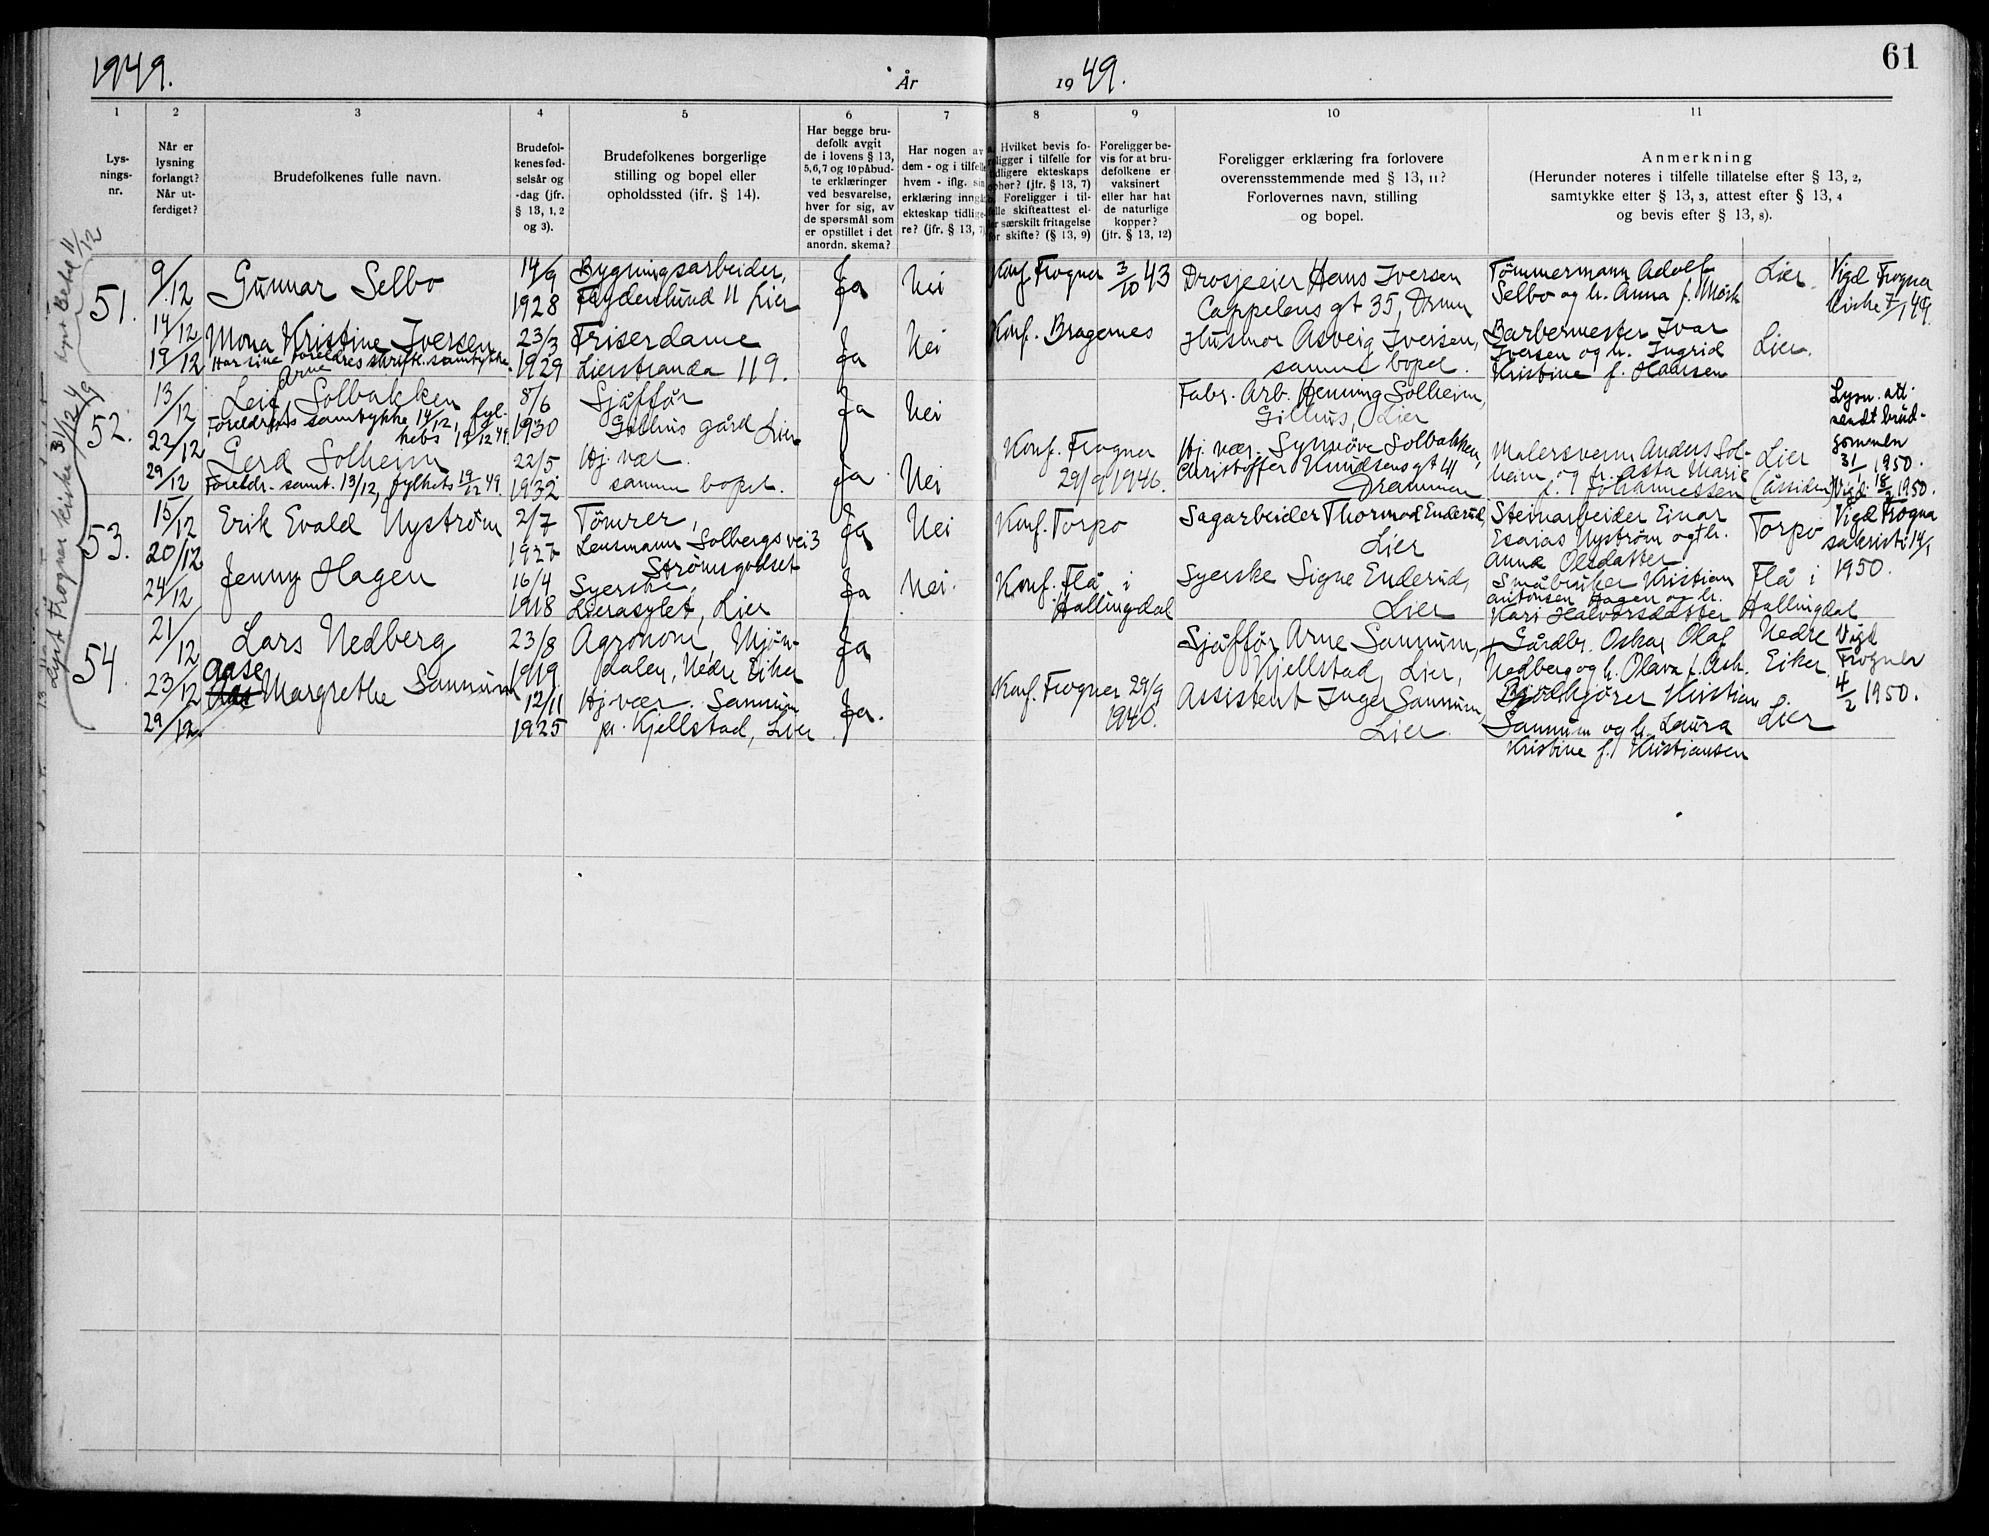 1949.
År
19 49.
61
1
2
3
4
5
6
7
8
9
10
11
Lys-
nings-
nr.
Når er
lysning
forlangt?
Når ut-
ferdiget?
Brudefolkenes fulle navn.
Brudefol-
kenes fød-
selsår og
-dag (jfr.
§ 13, 1, 2
og 3).
Brudefolkenes borgerlige
stilling og bopel eller
opholdssted (jfr. § 14).
Har begge bru-
defolk avgit
de i lovens § 13,
5,6,7 og 10 påbud-
te erklæringer
ved besvarelse,
hver for sig, av
de spørsmål som
er opstillet i det
anordn. skema?
Har nogen av
dem - og i tilfelle
hvem - iflg. sin
erklæring inngå
ekteskap tidlige-
re? (jfr. § 13, 7)
Hvilket bevis fo-
religger i tilfelle for
tidligere ekteskaps
ophør? (jfr. § 13, 7)
Foreligger i til-
felle skifteattest el-
ler særskilt fritagelse
for skifte? (§ 13, 9)
Foreligger be-
vis for at bru-
defolkene er
vaksinert
eller har hat
de naturlige
kopper?
(jfr. § 13, 12)
Foreligger erklæring fra forlovere
overensstemmende med § 13, 11?
Forlovernes navn, stilling
og bopel.
Anmerkning
(Herunder noteres i tilfelle tillatelse efter § 13, 2,
samtykke efter § 13, 3, attest efter § 13, 4
og bevis efter § 13, 8).
lyst Betel 11/12
Lyst Frogner kirke 31/12 49
51.
9/12
14/12
19/12
Gunnar Selbo
14/9
1928
Bygningsarbeider,
11 Lier
Ja
Nei
Konf. Frogner 3/10 43
Drosjeeier Hans Iversen
Cappelens gt 35, Drmn
Tømmermann Adolf
Selbo og h. Anna f. Mørk
Lier.
Vigd Frogner
kirke 7/1 49.
Mona Kristine Iversen
Har sine foreldres skriftl. samtykke.
23/3
1929
Friserdame
Lierstranda 119.
Ja
Nei
Konf. Bragernes
Husmor Asveig Iversen,
samme bopel.
Barbermester Ivar
Iversen og h. Ingrid
Kristine f. Haansen
Lier.
52.
13/12
22/12
29/12
Arne
Leif Solbakken
Foreldrets samtykke 14/12, fyl-
kets 19/12 49.
8/6
1930
Sjåffør
Gilhus gård Lier
Ja
Nei
Fabr. Arb. Henning Solheim,
Gilhus, Lier
Lysn. att.
sendt brud-
gommen
31/1 1950.
Vigd 18/2 1950.
Gerd Solheim
Foreldr. samt. 13/12, fylkets 19/12 49.
22/5
1932
Hj. vær.
samme bopel.
Ja
Nei
Konf. Frogner
29/9 1946.
Hj. vær. Synnøve Solbakken,
Christoffer Knudsens gt 41
Drammen
Malersvenn Anders Sol-
heim og h. Asta Marie
f. Johannessen
Lier
(Åssiden)
53.
15/12
20/12
24/12
Erik Evald Nystrøm
2/7
1927
Tømrer,
Lensmann Solbergs vei 3
Strømsgodset
Ja
Nei
Konf. Torpo
Sagarbeider Thormod Enderud,
Lier
Steinarbeider Einar
Esaias Nystrøm og h.
Anne Olsdatter
Torpo
Vigd Frogner
sakristi 14/1
1950.
Jenny Hagen
16/4
1918
Syerske,
Lierasylet, Lier
Ja
Nei.
Konf. Flå i
Hallingdal
Syerske Signe Enderud,
Lier
Småbruker Kristian
Antonsen Hagen og h.
Kari Halvorsdatter
Flå i
Hallingdal
54.
21/12
23/12
29/12
Lars Nedberg
23/8
1919
Agronom, Mjøn-
dalen, Nedre Eiker
Ja
Sjåffør Arne Sannum,
Kjellstad, Lier,
Gårdbr. Oskar Olaf
Nedberg og h. Olava f. Ask.
Nedre
Eiker
Vigd
Frogner
4/2 1950.
Aase
Margrethe Sannum
12/11
1925
Hj. vær. Sannum
pr. Kjellstad, Lier
Ja.
Konf. Frogner 29/9
1940.
Assistent Inger Sannum,
Lier
Kristian
Sannum og h. Laura
Kristine f. Kristiansen
Lier